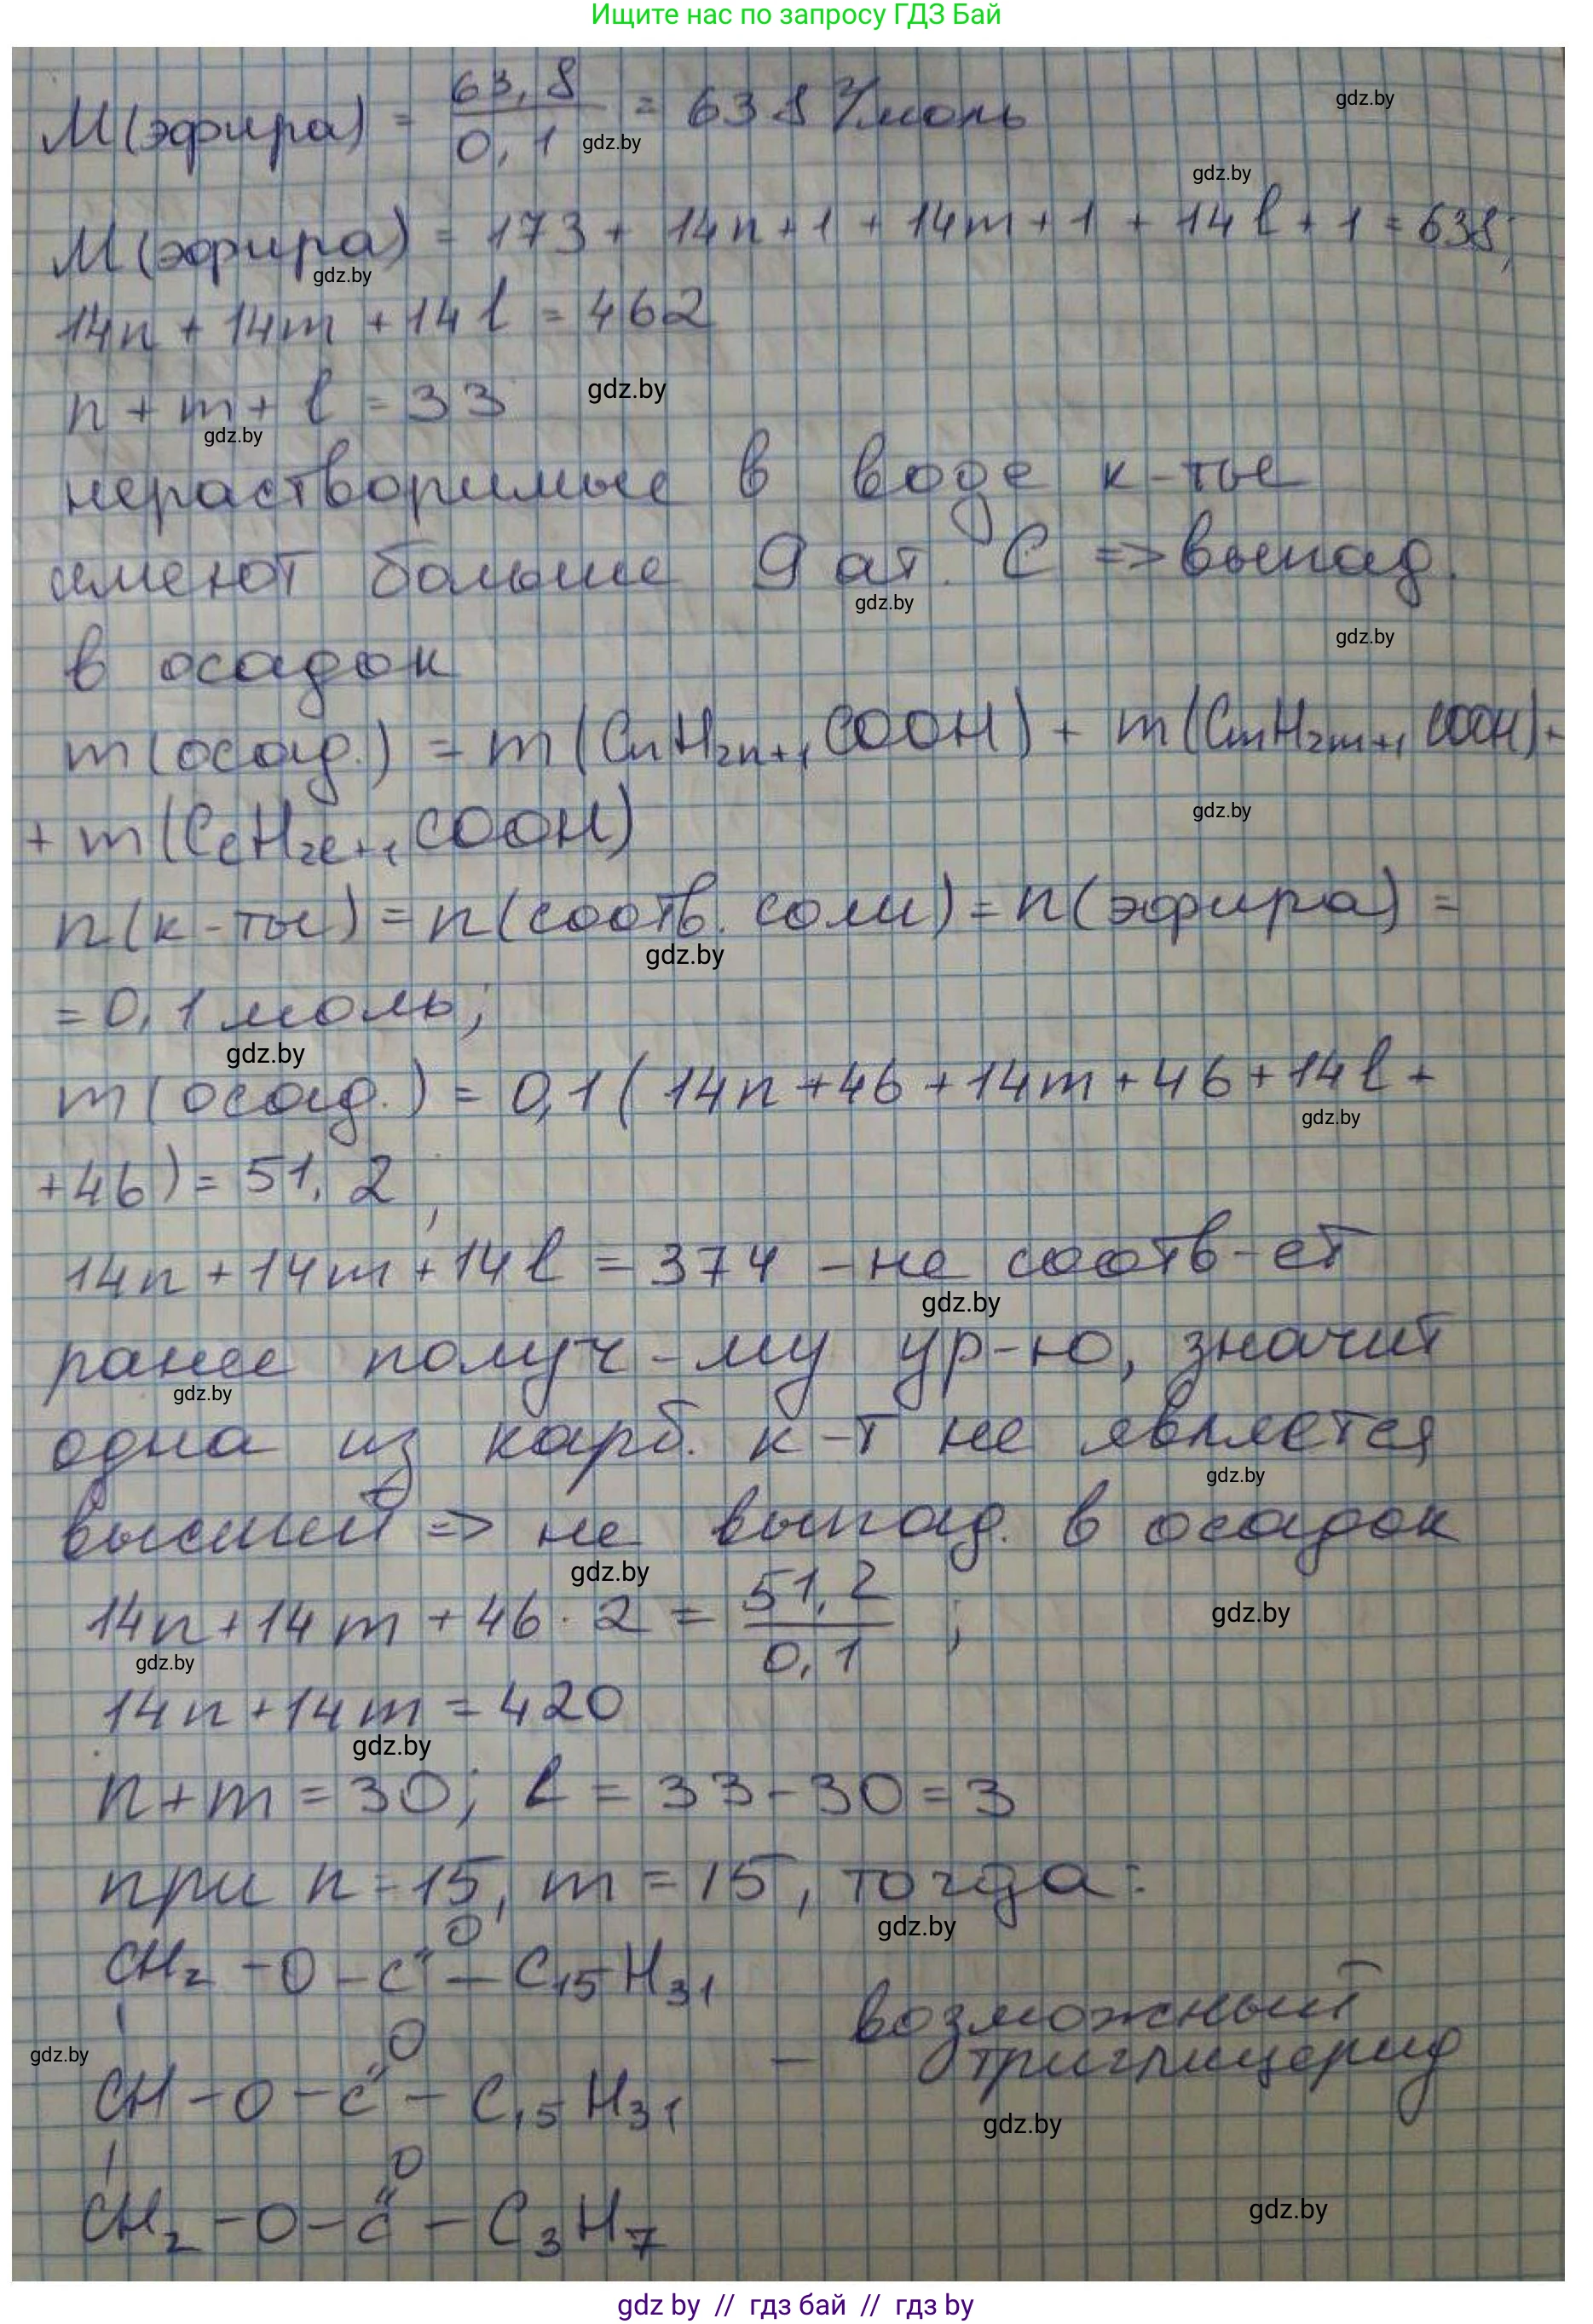 Ищите нас по запросу ГДЗ Бай
M(эфира) = 63,8 / 0,1 = 638 г/моль
gdz.by
gdz.by
gdz.by
M(эфира) = 173 + 14n+1 + 14m+1 + 14l+1 = 638;
gdz.by
14n + 14m + 14l = 462
n + m + l = 33
gdz.by
gdz.by
нерастворимые в воде к-ты
имеют больше 9 ат. C => выпад.
gdz.by
gdz.by
в осадок
m(осад.) = m(CnH2n+1COOH) + m(CmH2m+1COOH)+
gdz.by
+ m(ClH2l+1COOH)
n(к-ты) = n(соотв. соли) = n(эфира) =
gdz.by
= 0,1 моль;
gdz.by
m(осад.) = 0,1(14n+46+14m+46+14l+
gdz.by
+46) = 51,2;
14n+14m+14l = 374 - не соотв-ет
gdz.by
ранее получ-му ур-ю, значит
gdz.by
одна из карб. к-т не является
gdz.by
высшей => не выпад. в осадок
gdz.by
14n+14m+46·2 = 51,2 / 0,1;
gdz.by
gdz.by
14n+14m = 420
gdz.by
n+m = 30; l = 33-30 = 3
при n=15, m=15, тогда:
gdz.by
O
CH2-O-C-C15H31
O
gdz.by
- возможный
триглицерид
CH-O-C-C15H31
gdz.by
O
CH2-O-C-C3H7
gdz.by
gdz by // гдз бай // гдз by